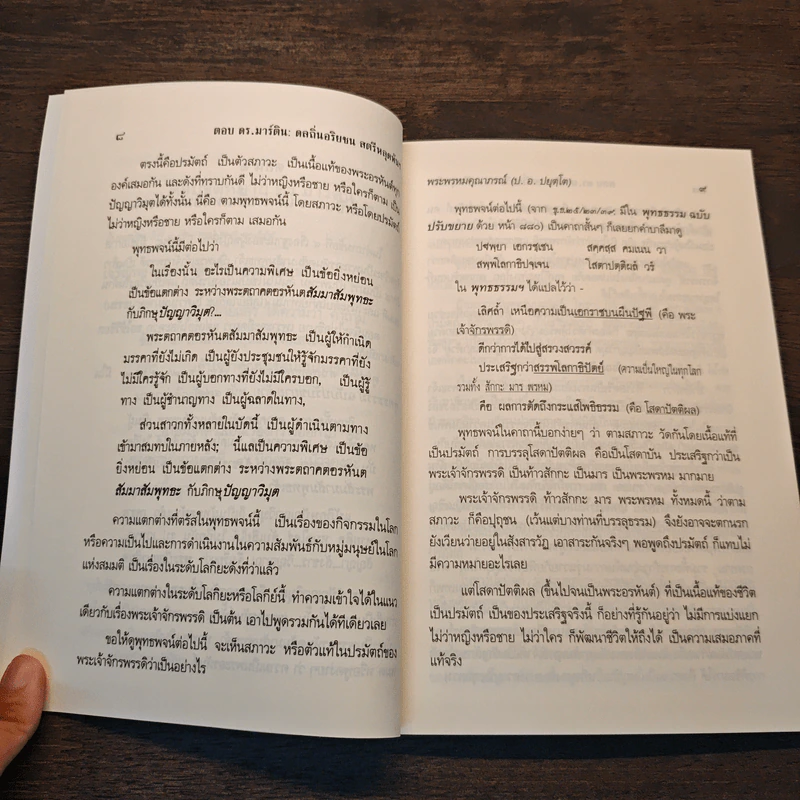 ๘
ตอบ ดร.มาร์ติน: ดลถิ่นอริยชน สตรีหลุดพ้น
ตรงนี้คือปรมัตถ์ เป็นตัวสภาวะ เป็นเนื้อแท้ของพระอรหันต์ทุก
องค์เสมอกัน และดังที่ทราบกันดี ไม่ว่าหญิงหรือชาย หรือใครก็ตาม เป็น
ปัญญาวิมุตได้ทั้งนั้น นี่คือ ตามพุทธพจน์นี้ โดยสภาวะ หรือโดยปรมัตถ์
ไม่ว่าหญิงหรือชาย หรือใครก็ตาม เสมอกัน
พุทธพจน์นี้มีต่อไปว่า
ในเรื่องนั้น อะไรเป็นความพิเศษ เป็นข้อยิ่งหย่อน
เป็นข้อแตกต่าง ระหว่างพระตถาคตอรหันตสัมมาสัมพุทธะ
กับภิกษุปัญญาวิมุต?...
พระตถาคตอรหันตสัมมาสัมพุทธะ เป็นผู้ให้กำเนิด
มรรคาที่ยังไม่เกิด เป็นผู้ยังประชุมชนให้รู้จักมรรคาที่ยัง
ไม่มีใครรู้จัก เป็นผู้บอกทางที่ยังไม่มีใครบอก, เป็นผู้รู้
ทาง เป็นผู้ชำนาญทาง เป็นผู้ฉลาดในทาง,
ส่วนสาวกทั้งหลายในบัดนี้ เป็นผู้ดำเนินตามทาง
เข้ามาสมทบในภายหลัง; นี้แลเป็นความพิเศษ เป็นข้อ
ยิ่งหย่อน เป็นข้อแตกต่าง ระหว่างพระตถาคตอรหันต
สัมมาสัมพุทธะ กับภิกษุปัญญาวิมุต
ความแตกต่างที่ตรัสในพุทธพจน์นี้ เป็นเรื่องของกิจกรรมในโลก
หรือความเป็นไปและการดำเนินงานในความสัมพันธ์กับหมู่มนุษย์ในโลก
แห่งสมมติ เป็นเรื่องในระดับโลกิยะดังที่ว่าแล้ว
ความแตกต่างในระดับโลกิยะหรือโลกีย์นี้ ทำความเข้าใจได้ในแนว
เดียวกับเรื่องพระเจ้าจักรพรรดิ เป็นต้น เอาไปพูดรวมกันได้ทีเดียวเลย
ขอให้ดูพุทธพจน์ต่อไปนี้ จะเห็นสภาวะ หรือตัวแท้ในปรมัตถ์ของ
พระเจ้าจักรพรรดิว่าเป็นอย่างไร
พระพรหมคุณาภรณ์ (ป. อ. ปยุตฺโต)
๙
พุทธพจน์ต่อไปนี้ (จาก ขุ.ธ.๒๕/๒๓/๓๙, มีใน พุทธธรรม ฉบับ
ปรับขยาย ด้วย หน้า ๘๘๐) เป็นคาถาสั้นๆ ก็เลยยกคำบาลีมาดู
ปฐพฺยา เอกรชฺเชน สคฺคสฺส คมเนน วา
สพฺพโลกาธิปจฺเจน โสตาปตฺติผลํ วรํ
ใน พุทธธรรมฯ ได้แปลไว้ว่า -
เลิศล้ำ เหนือความเป็นเอกราชบนผืนปัฐพี (คือ พระ
เจ้าจักรพรรดิ)
ดีกว่าการได้ไปสู่สรวงสวรรค์
ประเสริฐกว่าสรรพโลกาธิปัตย์ (ความเป็นใหญ่ในทุกโลก
รวมทั้ง สักกะ มาร พรหม)
คือ ผลการตัดถึงกระแสโพธิธรรม (คือ โสดาปัตติผล)
พุทธพจน์ในคาถานี้บอกง่ายๆ ว่า ตามสภาวะ วัดกันโดยเนื้อแท้ที่
เป็นปรมัตถ์ การบรรลุโสดาปัตติผล คือเป็นโสดาบัน ประเสริฐกว่าเป็น
พระเจ้าจักรพรรดิ เป็นท้าวสักกะ เป็นมาร เป็นพระพรหม มากมาย
พระเจ้าจักรพรรดิ ท้าวสักกะ มาร พระพรหม ทั้งหมดนี้ ว่าตาม
สภาวะ ก็คือปุถุชน (เว้นแต่บางท่านที่บรรลุธรรม) จึงยังอาจจะตกนรก
ยังเวียนว่ายอยู่ในสังสารวัฏ เอาสาระกันจริงๆ พอพูดถึงปรมัตถ์ ก็แทบไม่
มีความหมายอะไรเลย
แต่โสดาปัตติผล (ขึ้นไปจนเป็นพระอรหันต์) ที่เป็นเนื้อแท้ของชีวิต
เป็นปรมัตถ์ เป็นของประเสริฐจริงนี้ ก็อย่างที่รู้กันอยู่ว่า ไม่มีการแบ่งแยก
ไม่ว่าหญิงหรือชาย ไม่ว่าใคร ก็พัฒนาชีวิตให้ถึงได้ เป็นความเสมอภาคที่
แท้จริง